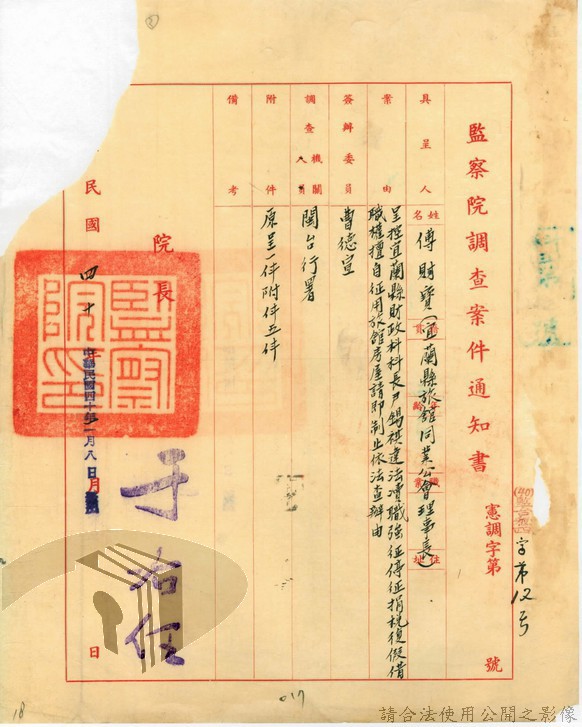 監察院調查案件通知書
憲調字第 號
字第12號
具呈人
姓名 傅財寶(宜蘭縣旅館同業公會理事長)
案由
呈控宜蘭縣財政科科長尹錫祺違法瀆職強征停征捐稅復假借
職權擅自征用旅館房屋請即制止依法查辦由
簽辦委員 曹德宣
調查機關人員 閩台行署
附件 原呈一件附件五件
備考
院長
于右任
民國 四十 日
中華民國四十年一月八日
監察院印
017
18
請合法使用公開之影像